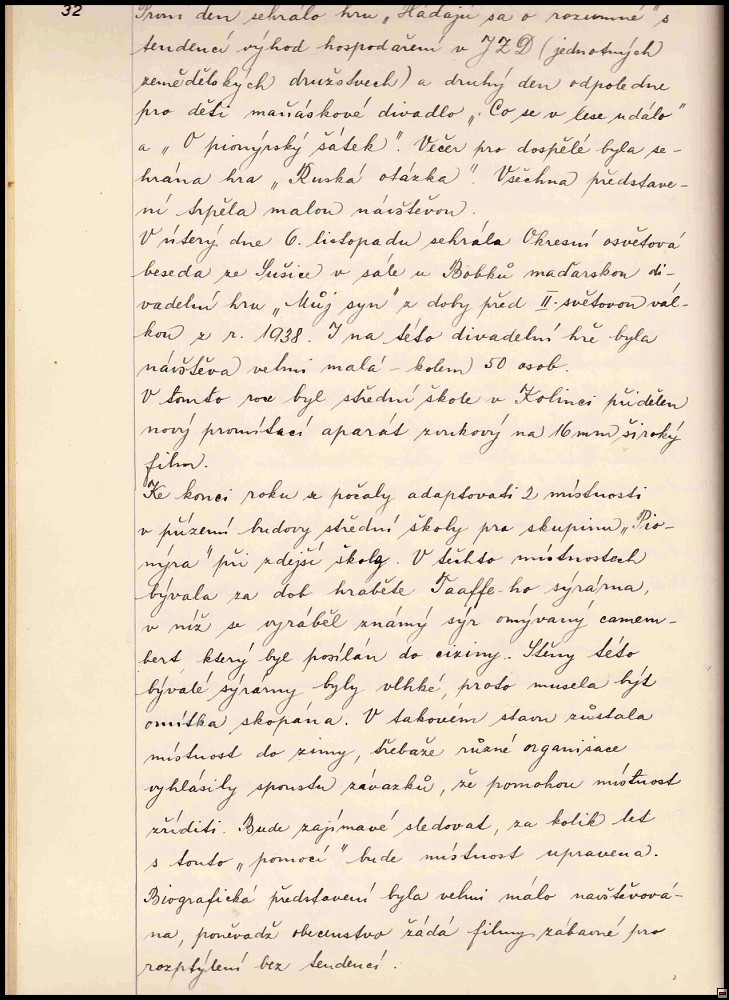 32
První den sehrálo hru „Hádajú sa o rozumné" s
tendencí výhod hospodaření v JZD (jednotných
zemědělských družstvech) a druhý den odpoledne
pro děti maňáskové divadlo „Co se v lese událo"
a „O pionýrský šátek". Večer pro dospělé byla se-
hrána hra „Ruská otázka". Všechna představe-
ní trpěla malou návštěvou.
V úterý dne 6. listopadu sehrála Okresní osvětová
beseda ze Sušice v sále u Bobků maďarskou di-
vadelní hru „Můj syn" z doby před II. světovou vál-
kou z r. 1938. I na této divadelní hře byla
návštěva velmi malá – kolem 50 osob.
V tomto roce byl střední škole v Kolinci přidělen
nový promítací aparát zvukový na 16 mm široký
film.
Ke konci roku se počaly adaptovati 2 místnosti
v přízemí budovy střední školy pro skupinu „Pio-
nýra" při zdejší škole. V těchto místnostech
bývala za dob hraběte Taaffe-ho sýrárna,
v níž se vyráběl známý sýr omývaný camem-
bert, který byl posílán do ciziny. Stěny této
bývalé sýrárny byly vlhké, proto musela být
omítka skopána. V takovém stavu zůstala
místnost do zimy, třebaže různé organisace
vyhlásily spoustu závazků, že pomohou místnost
zříditi. Bude zajímavé sledovat, za kolik let
s touto „pomocí" bude místnost upravena.
Biografická představení byla velmi málo navštěvová-
na, poněvadž obecenstvo žádá filmy zábavné pro
rozptýlení bez tendencí.